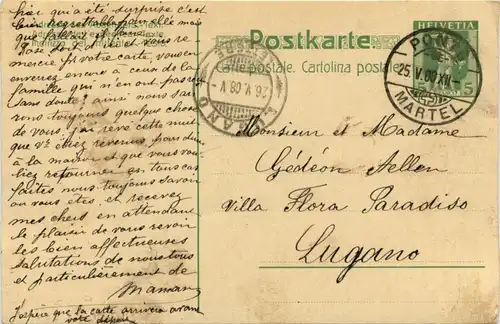 hier qui a été surprise c'est
bien regrettable pour elle mais
que fallait il faire
Rose
mercie pr votre carte, vous en
enverrez encore à ceux de la
famille qui n'en ont pas reçu
sans doute! ainsi nous sau-
rons toujours quelque chose
de vous. J'ai rêvé cette nuit
que vs étiez revenus
à la maison et que vous vou-
liez retourner en tous cas
faites nous toujours savoir
où vous êtes et recevez
mes chers en attendant
le plaisir de vous revoir
les bien affectueuses
salutations de nous tous
et particulièrement de
Maman
J'espère que la carte arrivera avant
votre départ
Postkarte
Carte postale. Cartolina postale
HELVETIA
5
PONT
25.V.09.XII
MARTEL
LUGANO
26.V.09.V
Monsieur et Madame
Gédéon Aellen
Villa Flora Paradiso
Lugano